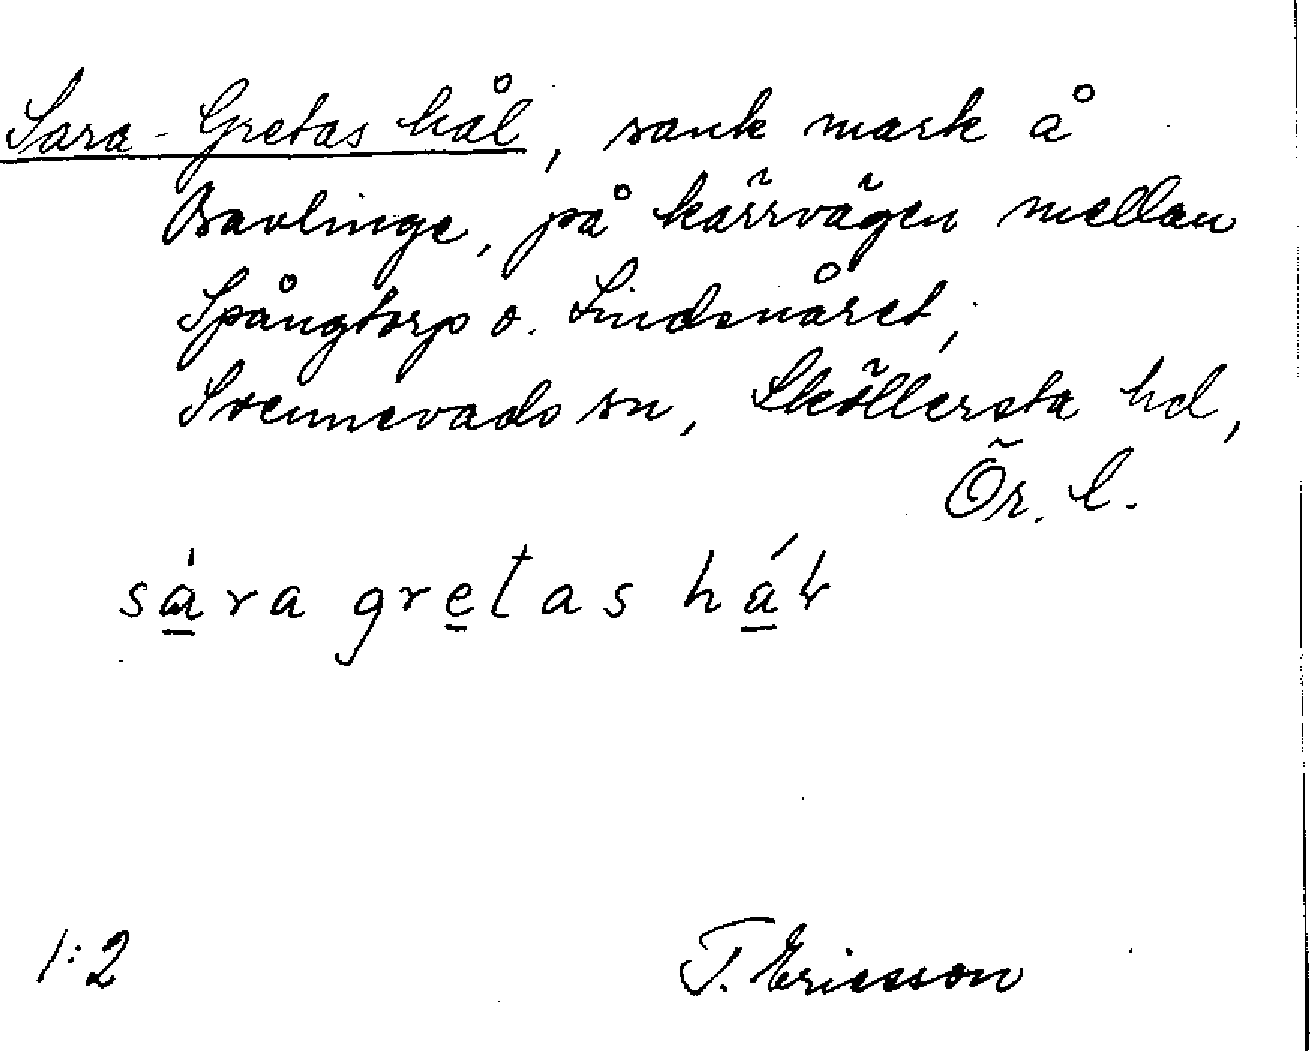 Sara-Gretas hål, sank mark å
Bavlinge, på kärrvägen mellan
Spångtorp o. Lindsnåret,
Svennevads sn, Sköllersta hd,
Ör. l.
sára gretas hál
1:2 T. Ericsson